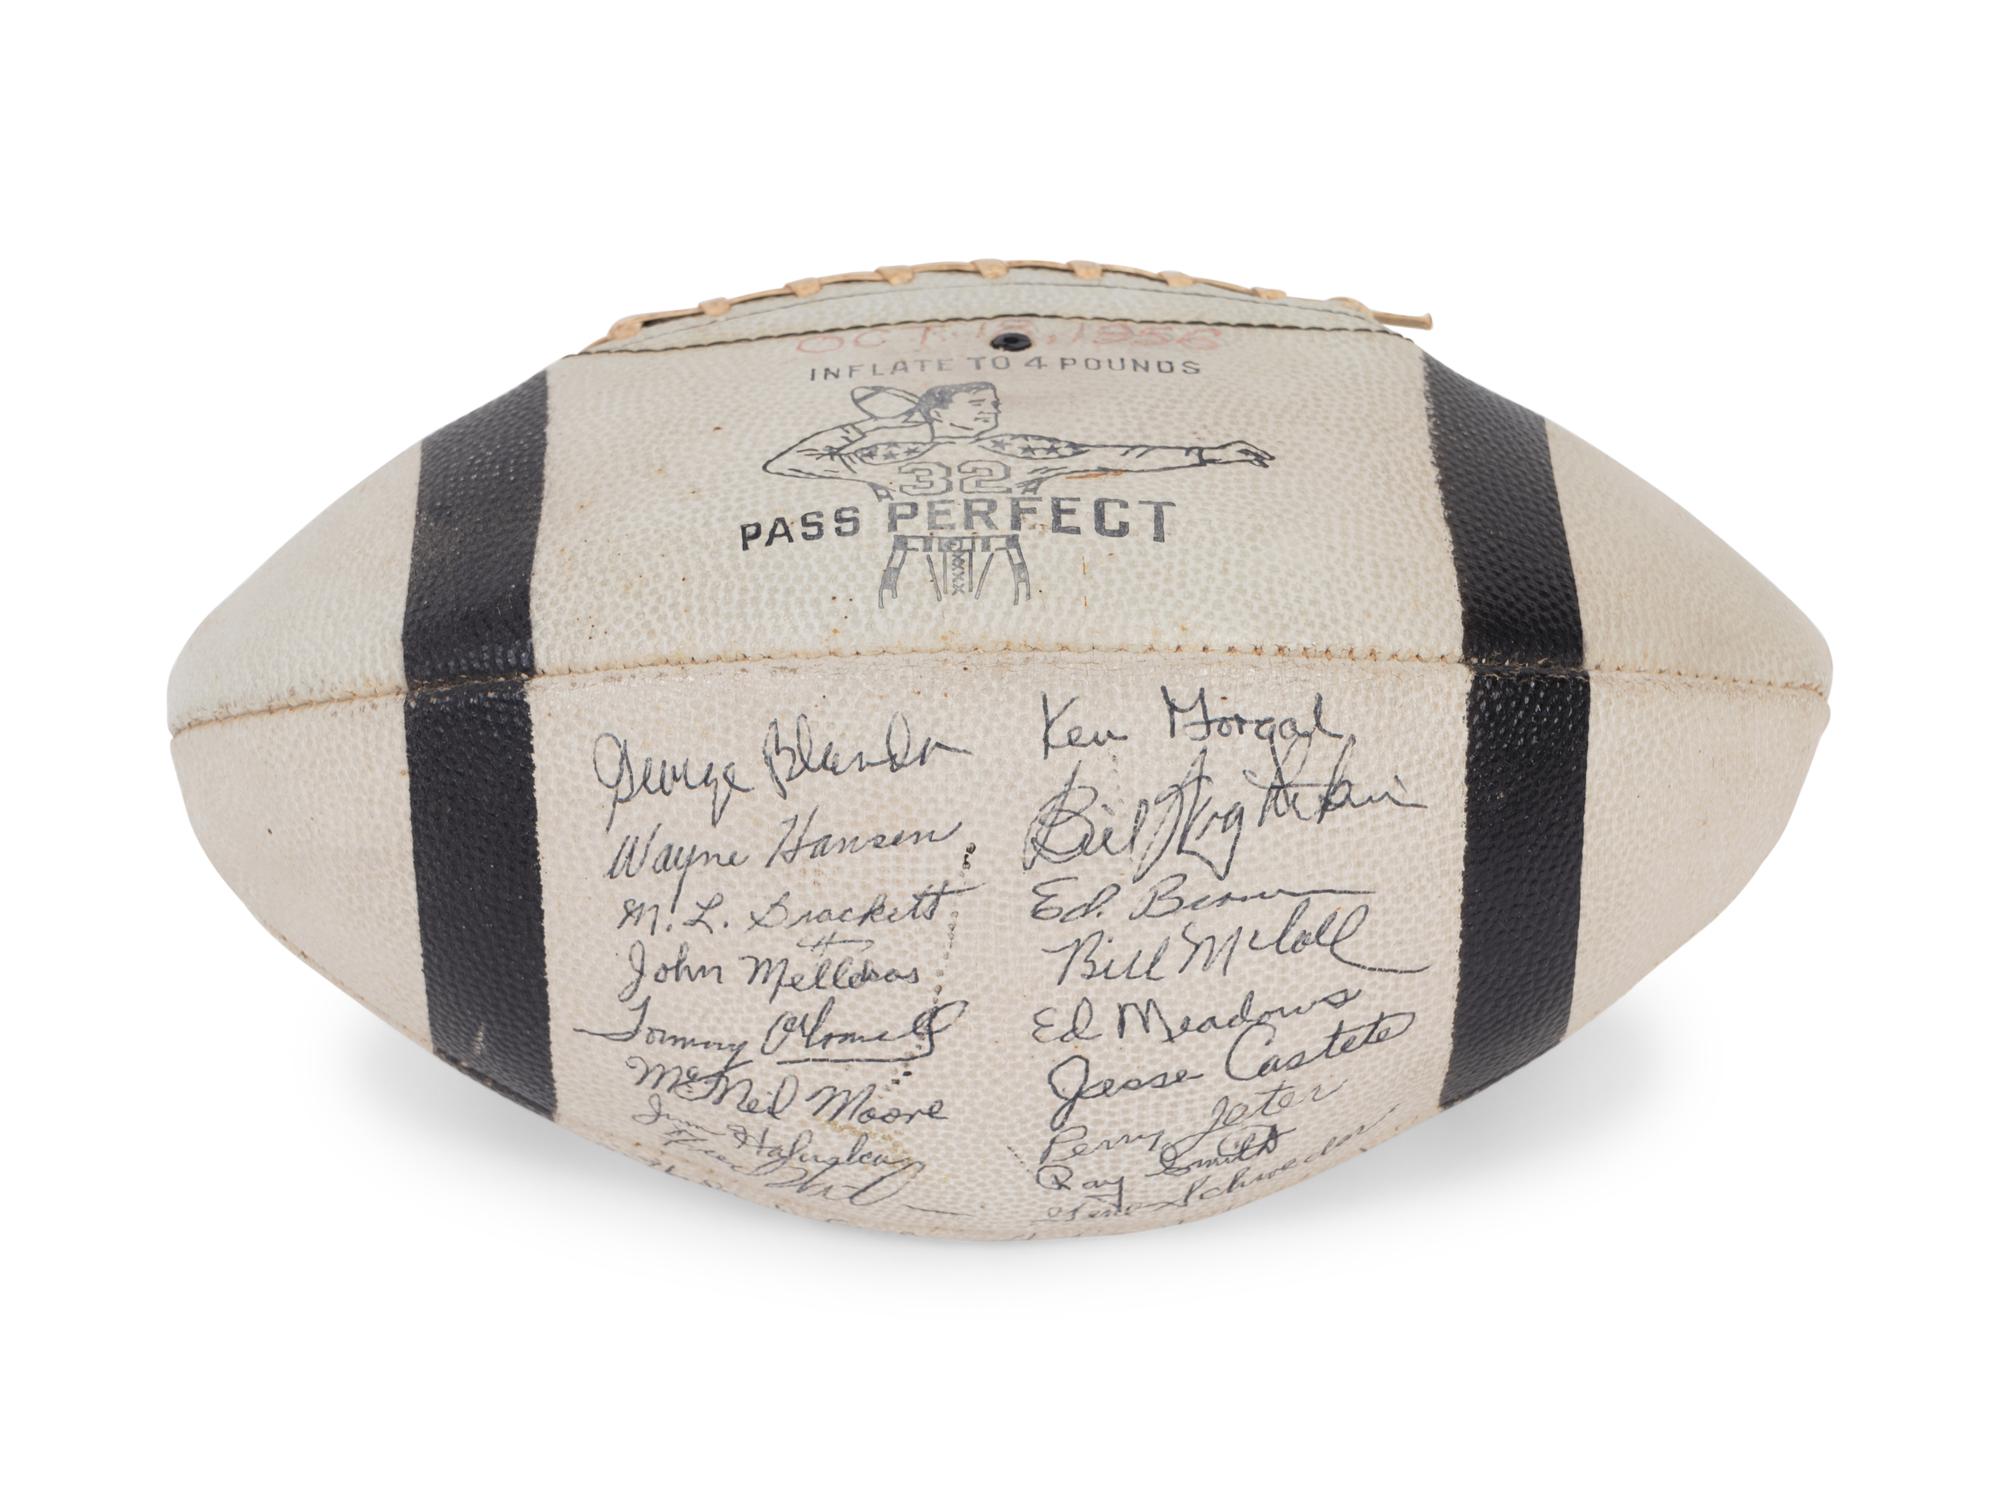 OCT. 1956
INFLATE TO 4 POUNDS
32
PASS PERFECT
George Blanda
Wayne Hansen
M. L. Brackett
John Mellekas
Tommy O'Connell
McNeil Moore
Jim Haluska
Ken Gorgal
Bill
Ed. Brown
Bill McColl
Ed Meadows
Jesse Castete
Perry Jeter
Ray Smith
Gene Schroeder